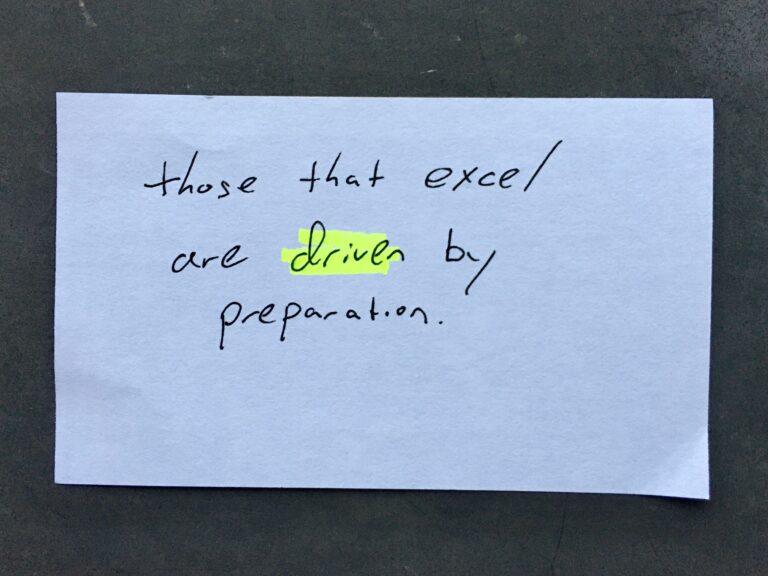 those that excel
are driven by
preparation.